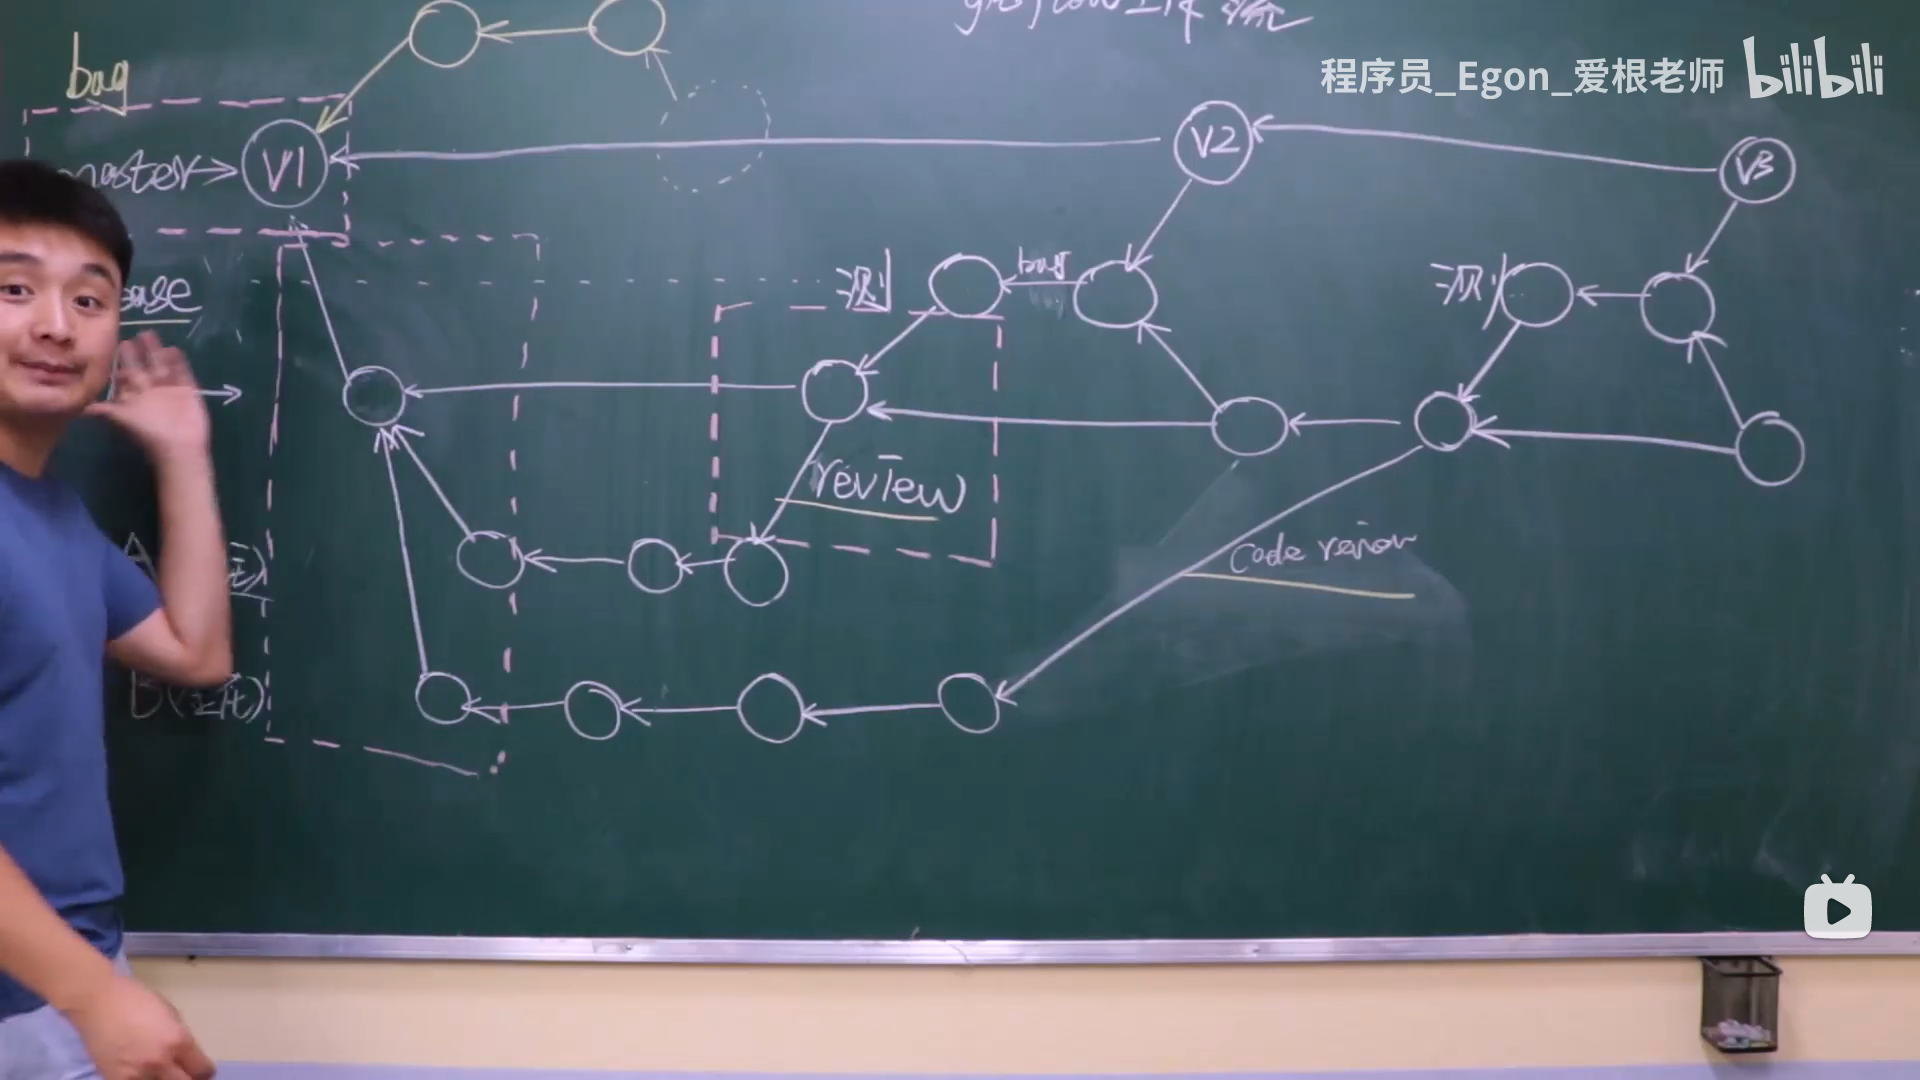 gitflow工作流
程序员_Egon_爱根老师 bilibili
bug
master
V1
V2
V3
ease
测
bug
测
review
code review
A
B(主花)